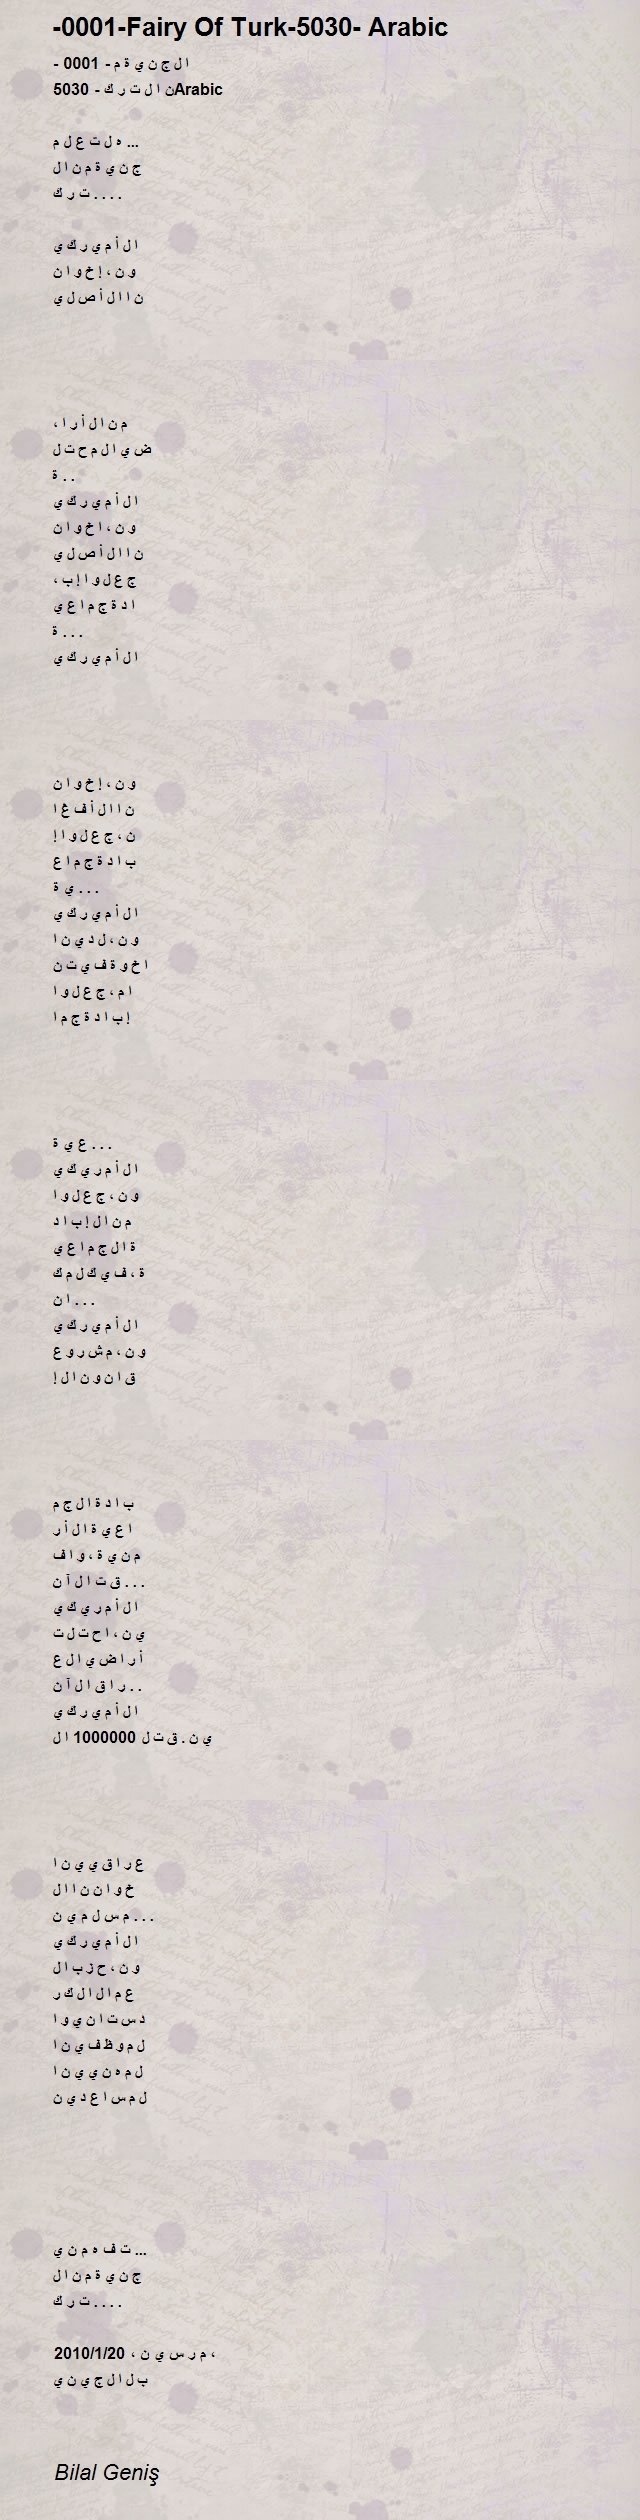 -0001-Fairy Of Turk-5030- Arabic
- 0001 - ا ل ج ن ي ة م
5030 - ن ا ل ت ر ك Arabic
ه ل ت ع ل م ...
ج ن ي ة م ن ا ل
ت ر ك . . . .
ا ل أ م ي ر ك ي
و ن ، إ خ و ا ن
ن ا ا ل أ ص ل ي
م ن ا ل أ ر ا ،
ض ي ا ل م ح ت ل
ة . .
ا ل أ م ي ر ك ي
و ن ، ا خ و ا ن
ن ا ا ل أ ص ل ي
ج ع ل و ا إ ب ،
ا د ة ج م ا ع ي
ة . . .
ا ل أ م ي ر ك ي
و ن ، إ خ و ا ن
ن ا ا ل أ ف غ ا
ن ، ج ع ل و ا إ
ب ا د ة ج م ا ع
ي ة . . .
ا ل أ م ي ر ك ي
و ن ، ل د ي ن ا
ا خ و ة ف ي ت ن
ا م ، ج ع ل و ا
إ ب ا د ة ج م ا
ع ي ة . . .
ا ل أ م ر ي ك ي
و ن ، ج ع ل و ا
م ن ا ل إ ب ا د
ة ا ل ج م ا ع ي
ة ، ف ي ك ل م ك
ا ن . . .
ا ل أ م ي ر ك ي
و ن ، م ش ر و ع
ق ا ن و ن ا ل إ
ب ا د ة ا ل ج م
ا ع ي ة ا ل أ ر
م ن ي ة ، و ا ف
ق ت ا ل آ ن . . .
ا ل أ م ر ي ك ي
ي ن ، ا ح ت ل ت
أ ر ا ض ي ا ل ع
ر ا ق ا ل آ ن . .
ا ل أ م ي ر ك ي
ي ن . ق ت ل 1000000 ا ل
ع ر ا ق ي ي ن ا
خ و ا ن ن ا ا ل
م س ل م ي ن . . .
ا ل أ م ي ر ك ي
و ن ، ح ز ب ا ل
ع م ا ل ا ل ك ر
د س ت ا ن ي و ا
ل م و ظ ف ي ن ا
ل م ه ن ي ي ن ا
ل م س ا ع د ي ن
ت ف ه م ن ي ...
ج ن ي ة م ن ا ل
ت ر ك . . . .
2010/1/20 ، م ر س ي ن ،
ب ل ا ل ج ي ن ي
Bilal Geniş